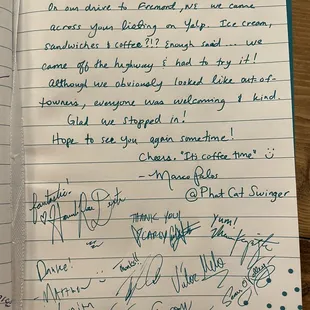 On our drive to Fremont, NE we came
across your listing on Yelp. Ice cream,
sandwiches & coffee?!? Enough said... we
came off the highway & had to try it!
Although we obviously looked like out-of-
towners, everyone was welcoming & kind.
Glad we stopped in!
Hope to see you again sometime!
Cheers. "It's coffee time"
- Marco Palos
@PhatCatSwinger
fantastic!
THANK YOU!
Yum!
Danke!
Matthew
Thanks!!